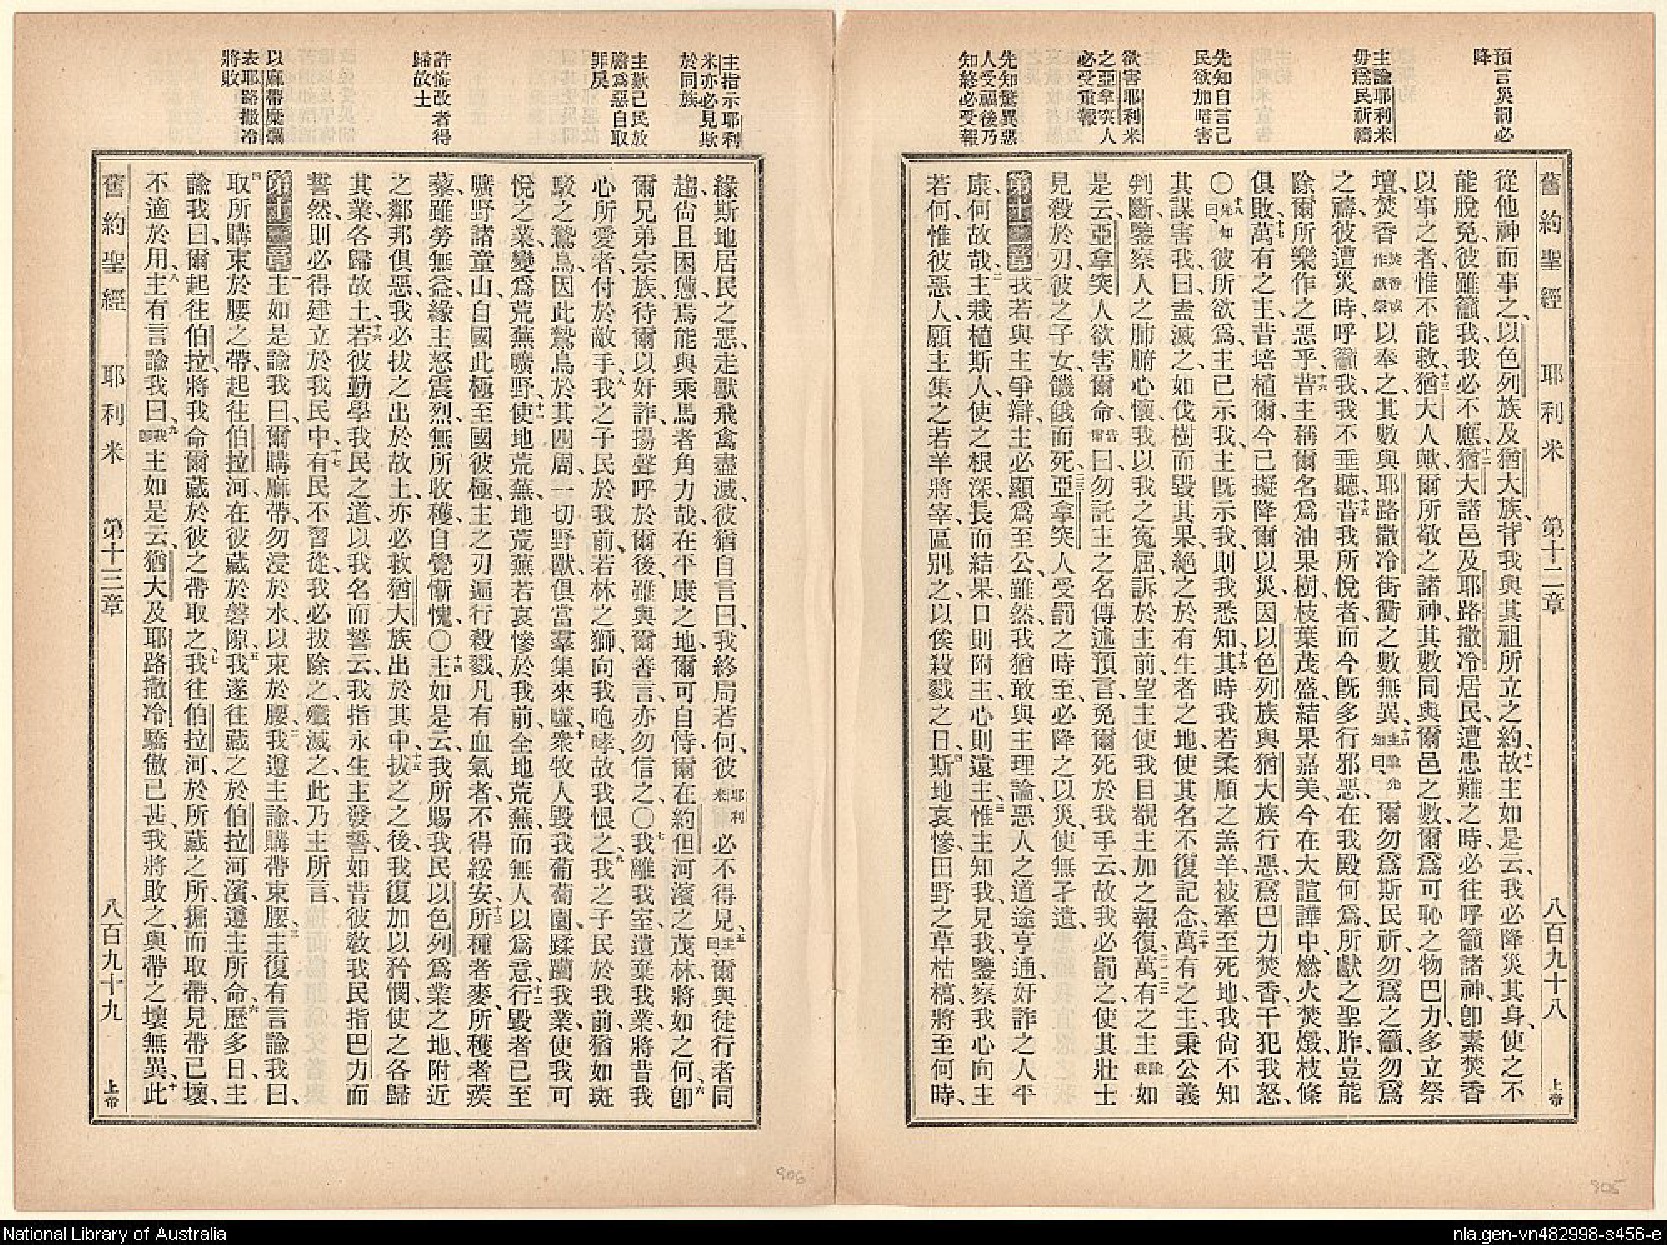 預言災罰必
降
主諭耶利米
毋爲民祈禱
先知自言己
民欲加陷害
欲害耶利米
之亞拿突人
必受重報
先知驚異惡
人受福後乃
知終必受報
舊約聖經 耶利米 第十二章 八百九十八 上帝
從他神而事之、以色列族及猶大族、背我與其祖所立之約、十一故主如是云、我必降災其身、使之不
能脫免、彼雖籲我、我必不應、十二猶大諸邑及耶路撒冷居民、遭患難之時、必往呼籲諸神、卽素焚香
以事之者、惟不能救、十三猶大人歟、爾所敬之諸神、其數同與爾邑之數、爾爲可恥之物巴力、多立祭
壇、焚香焚香或作獻祭以奉之、其數與耶路撒冷街衢之數無異、十四主諭先知曰、爾勿爲斯民祈、勿爲之籲、勿爲
之禱、彼遭災時呼籲我、我不垂聽、十五昔我所悅者、而今旣多行邪惡、在我殿何爲、所獻之聖胙、豈能
除爾所樂作之惡乎、十六昔主稱爾名爲油果樹、枝葉茂盛、結果嘉美、今在大諠譁中、燃火焚燬、枝條
俱敗、十七萬有之主、昔培植爾、今已擬降爾以災、因以色列族與猶大族行惡、爲巴力焚香、干犯我怒、
〇十八先知曰彼所欲爲、主已示我、主旣示我、則我悉知、十九其時我若柔順之羔羊、被牽至死地、我尙不知
其謀害我曰、盍滅之、如伐樹而毀其果、絕之於有生者之地、使其名不復記念、二十萬有之主、秉公義
判斷、鑒察人之肺腑心懷、我以我之冤屈、訴於主前、望主使我目覩主加之報復、二一萬有之主諭我如
是云、亞拿突人欲害爾命、嘗謂爾曰、勿託主之名傳述預言、免爾死於我手云、故我必罰之、使其壯士
見殺於刃、彼之子女、饑餓而死、二三亞拿突人受罰之時至、必降之以災、使無孑遺、
第十二章 一我若與主爭辯、主必顯爲至公、雖然、我猶敢與主理論、惡人之道途亨通、奸詐之人平
康、何故哉、二主栽植斯人、使之根深、長而結果、口則附主、心則遠主、三惟主知我、見我、鑒察我心向主
若何、惟彼惡人、願主集之若羊將宰、區別之以俟殺戮之日、四斯地哀慘、田野之草枯槁、將至何時、
主指示耶利
米亦必見欺
於同族
主歎己民放
膽爲惡自取
罪戾
許悔改者得
歸故土
以麻帶朽爛
表耶路撒冷
將敗
緣斯地居民之惡、走獸飛禽盡滅、彼猶自言曰、我終局若何、彼耶利米必不得見、五主曰、爾與徒行者同
趨、尙且困憊、焉能與乘馬者角力哉、在平康之地、爾可自恃、爾在約但河濱之茂林、將如之何、六卽
爾兄弟宗族、待爾以奸詐、揚聲呼於爾後、雖與爾善言、亦勿信之、〇七我離我室、遺棄我業、將昔我
心所愛者、付於敵手、八我之子民於我前、若林之獅、向我咆哮、故我恨之、九我之子民於我前、猶如斑
駁之鷙鳥、因此鷙鳥於其四周、一切野獸、俱當羣集來噬、十衆牧人毀我葡萄園、蹂躪我業、使我可
悅之業、變爲荒蕪曠野、十一使地荒蕪、地荒蕪若哀慘於我前、全地荒蕪、而無人以爲意、十二行毀者已至
曠野諸童山、自國此極、至國彼極、主之刃遍行殺戮、凡有血氣者、不得綏安、十三所種者麥、所穫者蒺
藜、雖勞無益、緣主怒震烈、無所收穫、自覺慚愧、〇十四主如是云、我所賜我民以色列爲業之地、附近
之鄰邦俱惡、我必拔之出於故土、亦必救猶大族出於其中、十五拔之之後、我復加以矜憫、使之各歸
其業、各歸故土、十六若彼勤學我民之道、以我名而誓云、我指永生主發誓、如昔彼敎我民指巴力而
誓然、則必得建立於我民中、十七有民不習從、我必拔除之、殲滅之、此乃主所言、
第十三章 一主如是諭我曰、爾購麻帶、勿浸於水、以束於腰、二我遵主諭、購帶束腰、三主復有言諭我曰、
四取所購束於腰之帶、起往伯拉河、在彼藏於磐隙、五我遂往藏之於伯拉河濱、遵主所命、六歷多日、主
諭我曰、爾起往伯拉、將我命爾藏於彼之帶取之、七我往伯拉河、於所藏之所、掘而取帶、見帶已壞、
不適於用、八主有言諭我曰、九我卽主如是云、猶大及耶路撒冷、驕傲已甚、我將敗之、與帶之壞無異、十此
舊約聖經 耶利米 第十三章 八百九十九 上帝
905
906
National Library of Australia
nla.gen-vn482998-s456-e